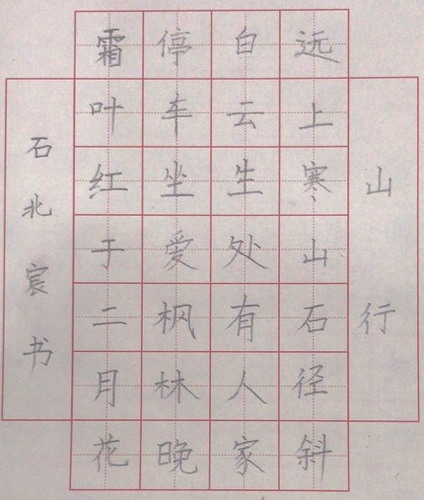 山行
远上寒山石径斜
白云生处有人家
停车坐爱枫林晚
霜叶红于二月花
石北宸书